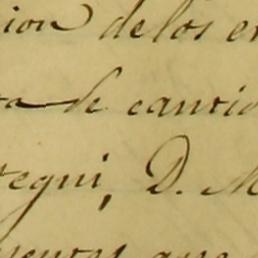 ion delos en
ta de cantid
tegui, D. M
que